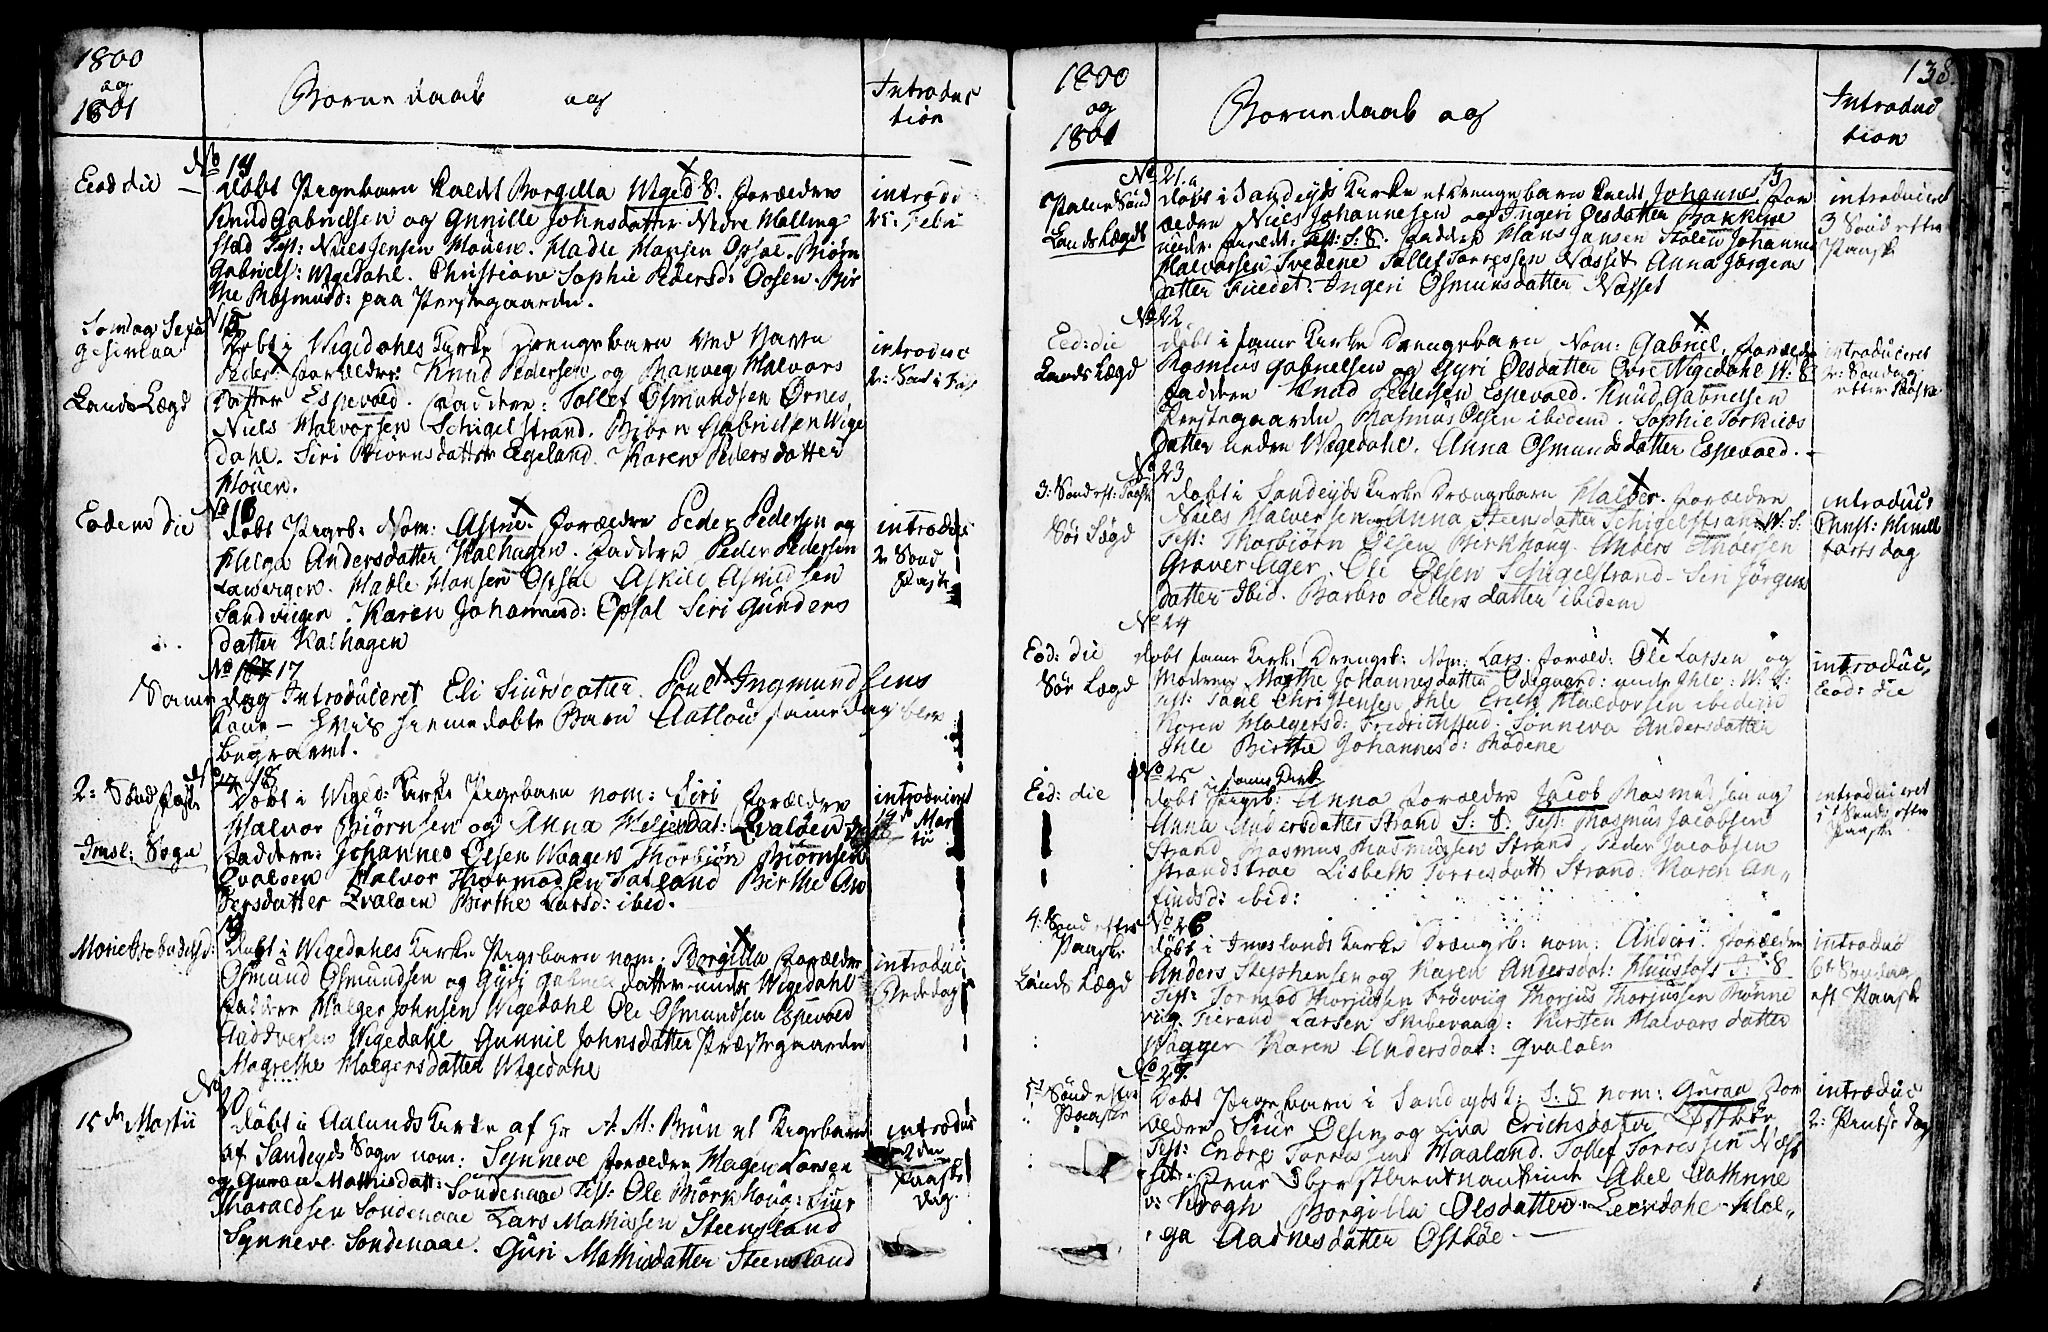 1800
og
1801
Børne daab og
Introduc
tion
No 14
Eod die — døbt Pigebarn kaldt Borgilla Wiged S. Forældre
Knud Gabrielsen og Gunille Johnsdatter Nedre Malling
stad Test: Niels Jensen Mouen. Madle Hansen Opsal. Biørn
Gabriels: Wigedahl. Christiane Sophie Pedersd: Opsen. Bir
the Rasmusd: paa Prestegaarden.
introdu
25: Febr
No 15
Søndag Sexa
gesima
Lands Lægd
Døbt i Wigedahls Kirke Drengebarn ved Navn
Peder Forældre: Knud Pedersen og Ranveg Halvors
datter Espevold. Faddere: Tollef Osmundsen Ørnes,
Niels Halvorsen Schigelstrand. Biørn Gabrielsen Wige
dahl. Siri Biørnsdatter Egeland. Karen Peders datter
Mouen.
introduc
2: Sønd i Fas
No 16
Eodem Die
døbt Pigeb: Nom: Astrie. Forældre Peder Pedersen og
Helga Andersdatter Kalhagen. Faddere Peder Pedersen
Madle Hansen Opsal Askild Askildsen
Sandviigen. Karen Johannesd: Opsal Siri Gunders
datter Kalhagen
introduc
2 Sønd
Paaske
No 17
Same dag Introduceret Eli Siursdatter. Poul Ingmundsens
Kone — hvis hiemmedøbte Barn Aatlou samme dag blev
begravet.
No 18
2: Sønd Faste
Imsl: Sogn
Døbt i Wiged: Kirke Pigebarn nom: Siri Forældre
Halvor Biørnsen og Anna Helgesdat: Qvaløen
Faddere: Johannes Olsen Waagen Thorbiørn Biørnsen
Qvaløen Halvor Thormodsen Tatland Birthe An
dersdatter Qvaløen Birthe Larsd: ibid.
introduceret
19 Mar
tii
19
Mariæ Bebudelsesd:
Døbt i Wigedahls Kirke Pigebarn nom: Borgilla Forældre
Osmund Osmundsen og Guri datter nedre Wigedahl
Faddere Holger Johnsen Wigedahl Ole Osmundsen Espevold
Wigedahl Gunnil Johnsdatter Præstegaarden
Magrethe Holgersdatter Wigedahl
introduc
No 20
15de Martii
døbt i Aalunds Kirke af Hr A. M: Brun et Pigebarn
af Sandeyds Sogn nom: Synneve Forældre Magen Larsen
og Guran Mathisdatt: Søndenaae Test: Ole Biørkhoug: Siur
Haraldsen Søndenaae Lars Mathissen Steensland
Synneve Søndenaae. Guri Mathisdatter Steensland
introduc
2den
Paaske
dag
1800
og
1801
Børnedaab og
138.
Introduc
tion
No 21.
Palme Sønd
Lands Lægd
døbt i Sandeyds Kirke et Drengebarn kaldt Johannes For
ældre Niels Johannesen og Ingeri Olsdatter Bakkene
Test: S: S. Faddere Hans Jansen Stølen Johannes
Halvorsen Svedene Tollef Torressen Næsset Anna Jørgens
datter Tuedet: Ingeri Osmunsdatter Næsset
introduceret
3 Sønd efter
Paaske
No 22
Eod: die
Lands Lægd
døbt i same Kirke Drengebarn Nom: Gabriel. Forældre
Rasmus Gabrielsen og Gyri Olsdatter Øvre Wigedahl W: S
Faddere Knud Pedersen Espevold. Knud Gabrielsen
Prestegaarden Rasmus Olsen ibidem. Sophie Torkilds
datter nedre Wigedahl. Anna Osmunds datter Espevold.
introduceret
2: Søndag
efter Paaske
No 23
3: Sønd eft: Paaske
Sør Lægd
døbt i Sandeyds Kirke Drængebarn Halvor. Forældre
Niels Halversen og Anna Steensdatter Schigelstrand W: S.
Test: Thorbiørn Olsen Birkhoug. Anders Andersen
Graver Eiger. Ole Olsen Schigelstrand. Siri Jørgens
datter Ibid. Barbro Peders datter ibidem
introduc:
Christ: Himmel
fartsdag
No 24
Eod: die
Sør Lægd
døbt same Kirk: Drengeb: Nom: Lars. Foræld: Ole Larsen og
Moderen Marthe Johannesdatter Ødegaard: under Ihle: W: S:
Test: Poul Christensen Ihle Erich Halvorsen ibidem
Karen Holgersd: Fredrichstad. Sønneva Andersdatter
Ihle Birthe Johannesd: Mødene
introduc:
Eod: die
No 25
Eod: die
i same Kirk
døbt Pigeb: Anna Forældre Jacob Rasmussen og
Anna Andersdatter Strand S: S. Test: Rasmus Jacobsen
Strand Rasmus Rasmussen Strand Peder Jacobsen
Strandstrae Lisbeth Torresdatt Strand: Karen An„
findsd: ibid:
introduceret
5t Sønds efter
Paaske
No 26
4: Sønd efter
Paaske
Lands Lægd
døbt i Imslands Kirke Drængb: nom: Anders. Forældre
Anders Stephensen og Karen Andersdat: Huustofs I: S
Test: Tormod Thorjussen Frøeviig Thorjus Thorjussen Rønne
vig. Tierand Larsen Skibevaag: Kirsten Halvors datter
Vaggen Karen Andersdat: Qvaløen
introduc
6t Søndag
eft Paaske
No 27.
5t Sønd efter
Paaske
døbt Pigebarn i Sandeyds K: S. S nom: Guran For
ældre Siur Olsen og Liva Erichsdatter Østbøe
Test: Endre Torressen Haaland. Tollef Torressen Næs
set. Frue Oberstlieutnantinde Abel Cathrine
v: Krogh Borgilla Olsdatter Leerdahl. Hel„
ga Aadnesdatter Østbøe. —
introduc
2: Pintse dag